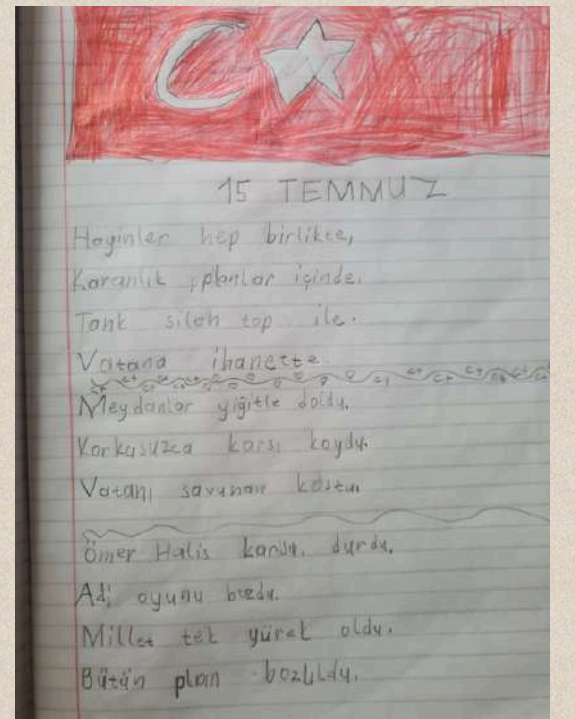 15 TEMMUZ
Hayinler hep birlikte,
Karanlık pplanlar içinde.
Tank silah top ile.
Vatana ihanette.
Meydanlar yiğitle doldu.
Korkusuzca karsı koydu.
Vatanı savunan kostu.
Ömer Halis karısı durdu.
Adi oyunu bozdu.
Millet tek yürek oldu.
Bütün plan bozuldu.